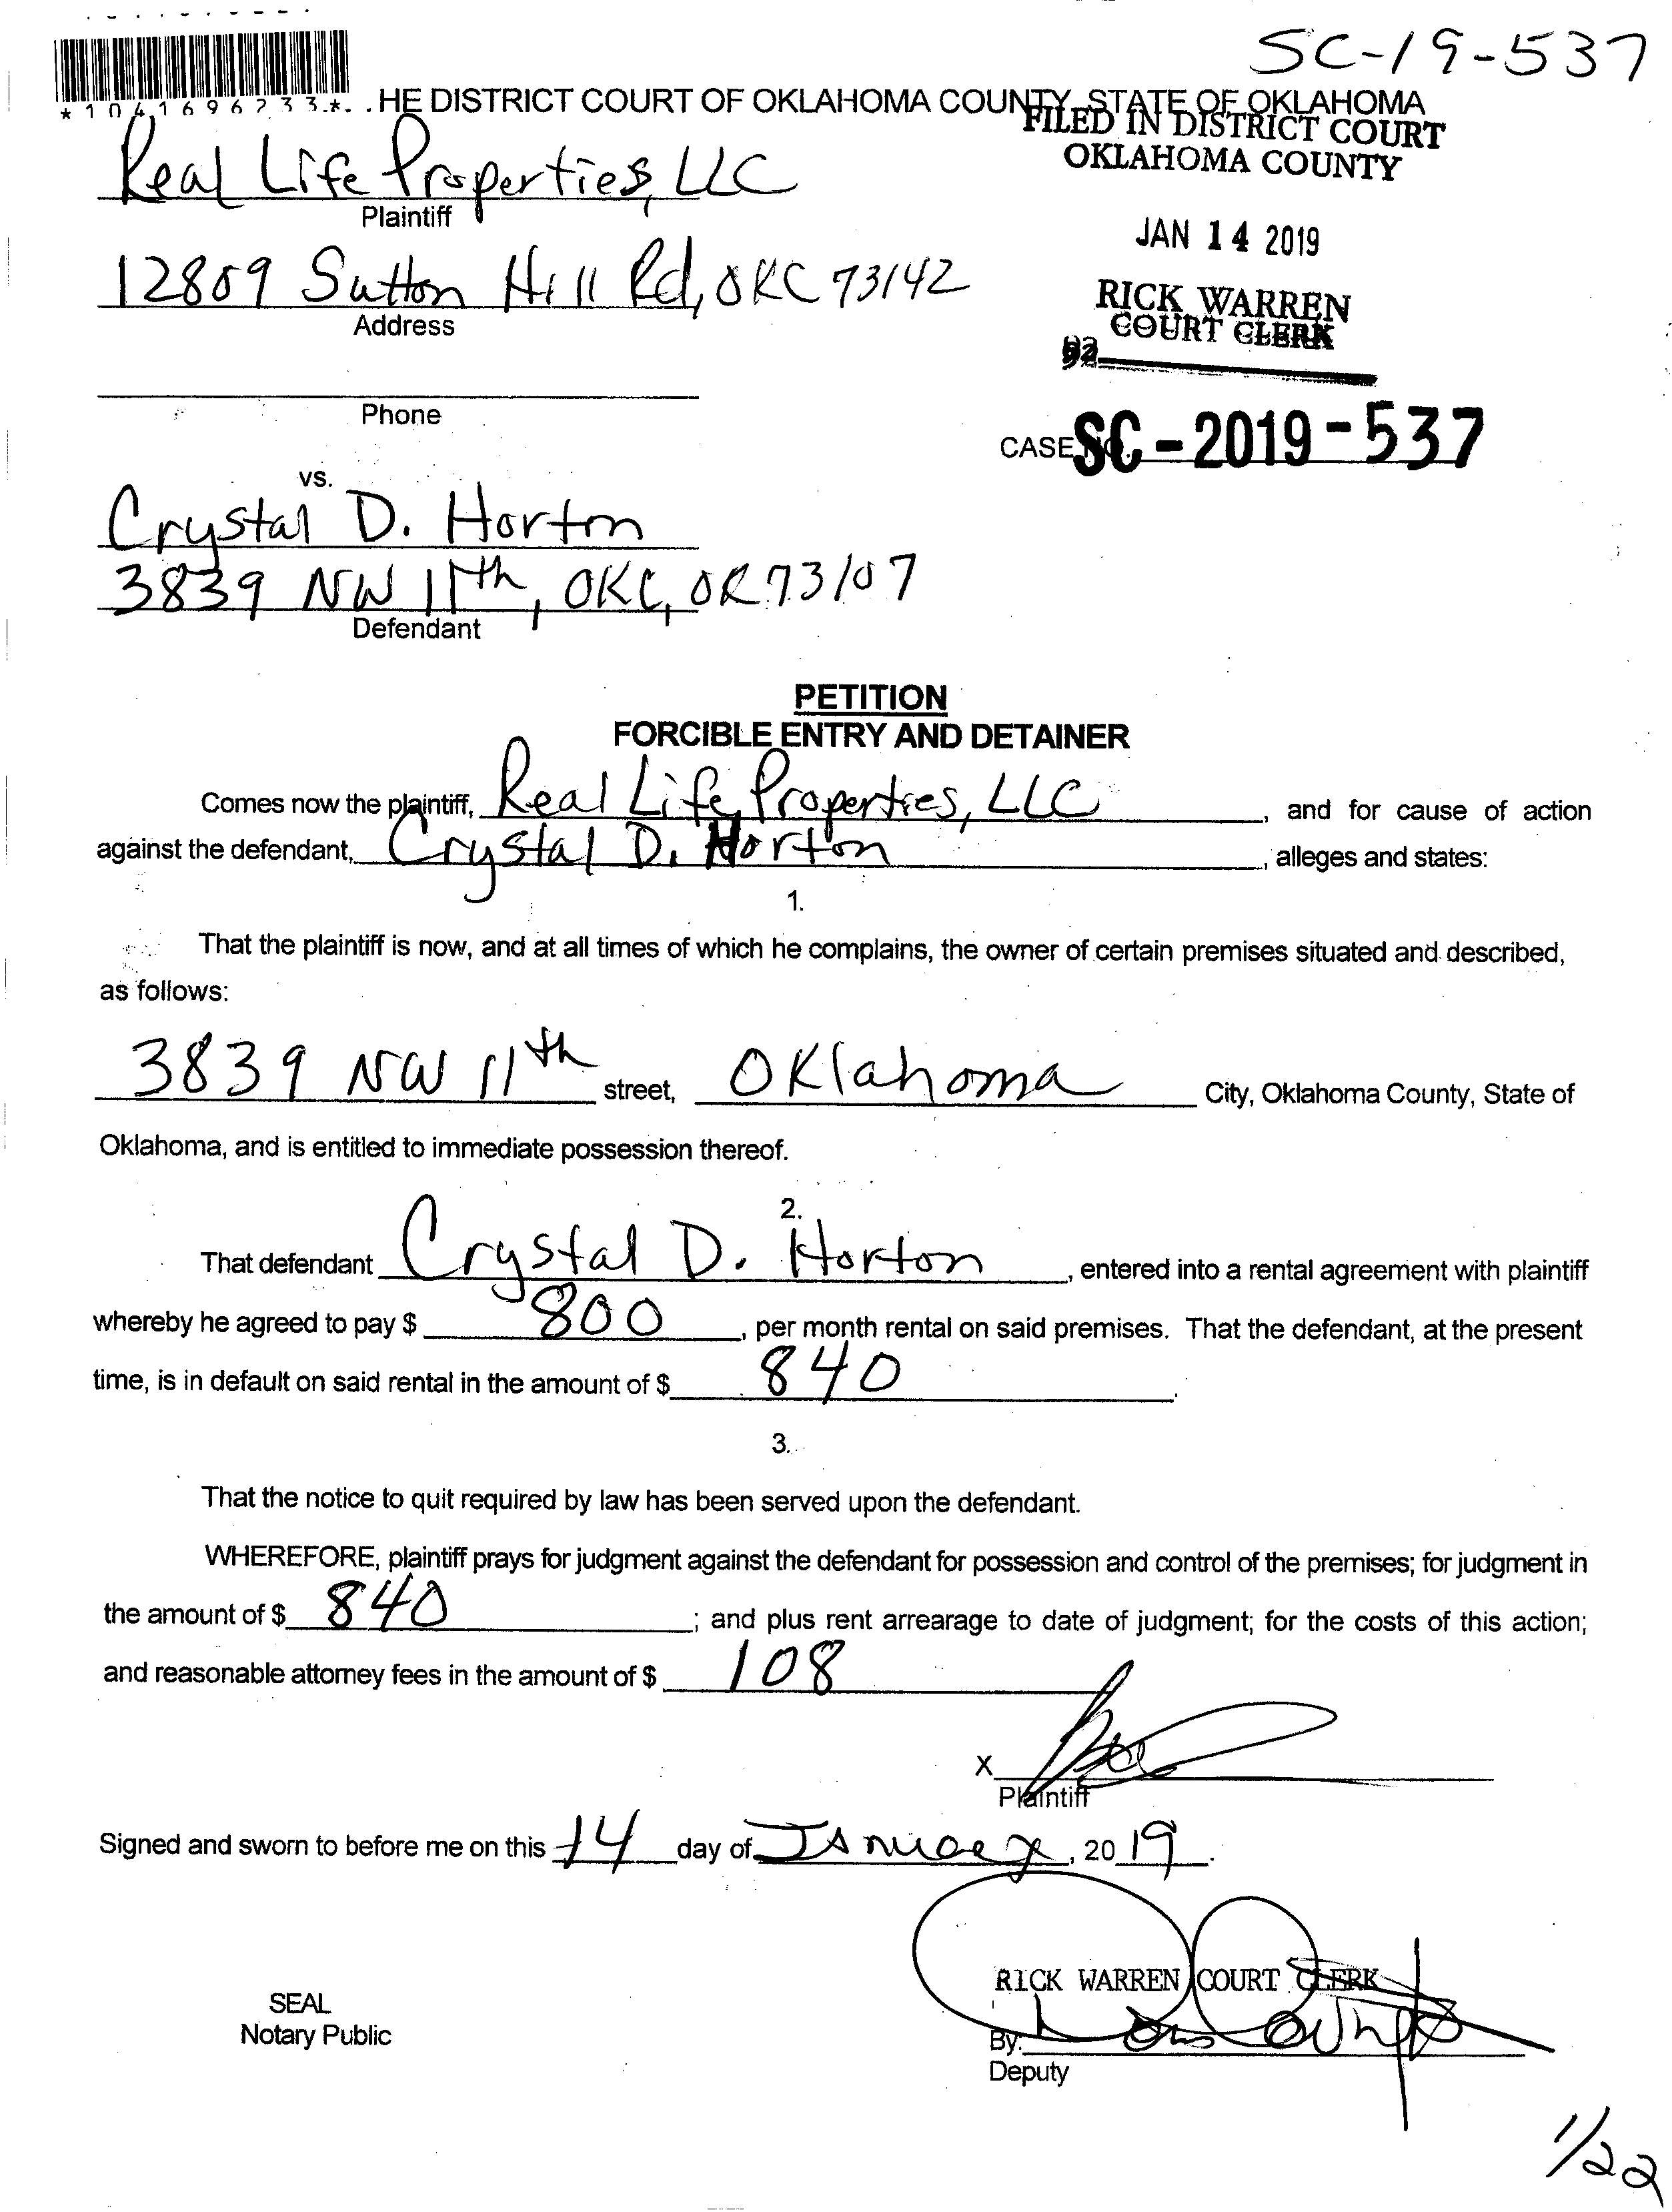 SC-19-537
*1041696233*
HE DISTRICT COURT OF OKLAHOMA COUNTY, STATE OF OKLAHOMA
FILED IN DISTRICT COURT
OKLAHOMA COUNTY
Real Life Properties, LLC
Plaintiff
JAN 14 2019
12809 Sutton Hill Rd, OKC 73142
Address
RICK WARREN
COURT CLERK
Phone
CASE NO. SC-2019-537
vs.
Crystal D. Horton
3839 NW 11th, OKC, OK 73107
Defendant
PETITION
FORCIBLE ENTRY AND DETAINER
Comes now the plaintiff, Real Life Properties, LLC, and for cause of action
against the defendant, Crystal D. Horton, alleges and states:
1.
That the plaintiff is now, and at all times of which he complains, the owner of certain premises situated and described,
as follows:
3839 NW 11th street, Oklahoma City, Oklahoma County, State of
Oklahoma, and is entitled to immediate possession thereof.
2.
That defendant Crystal D. Horton, entered into a rental agreement with plaintiff
whereby he agreed to pay $ 800, per month rental on said premises. That the defendant, at the present
time, is in default on said rental in the amount of $ 840.
3.
That the notice to quit required by law has been served upon the defendant.
WHEREFORE, plaintiff prays for judgment against the defendant for possession and control of the premises; for judgment in
the amount of $ 840; and plus rent arrearage to date of judgment; for the costs of this action;
and reasonable attorney fees in the amount of $ 108
X
Plaintiff
Signed and sworn to before me on this 14 day of January, 2019.
RICK WARREN COURT CLERK
SEAL
Notary Public
By:
Deputy
1/22